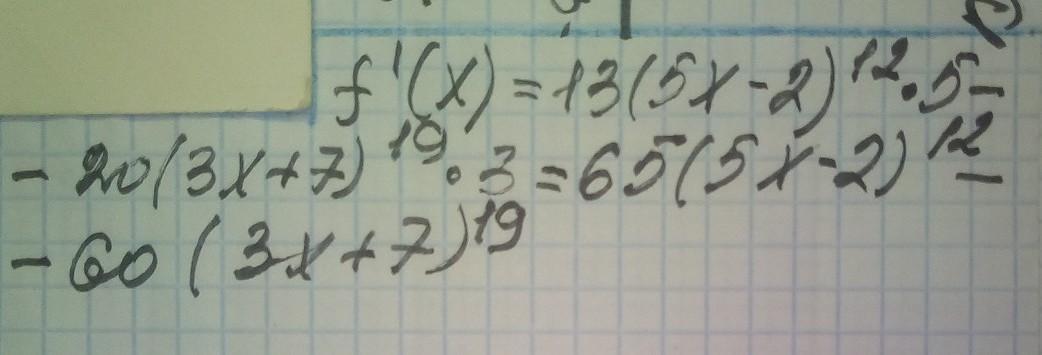 f'(x) = 13(5x-2)¹²·5-
- 20(3x+7)¹⁹·3 = 65(5x-2)¹²-
- 60(3x+7)¹⁹